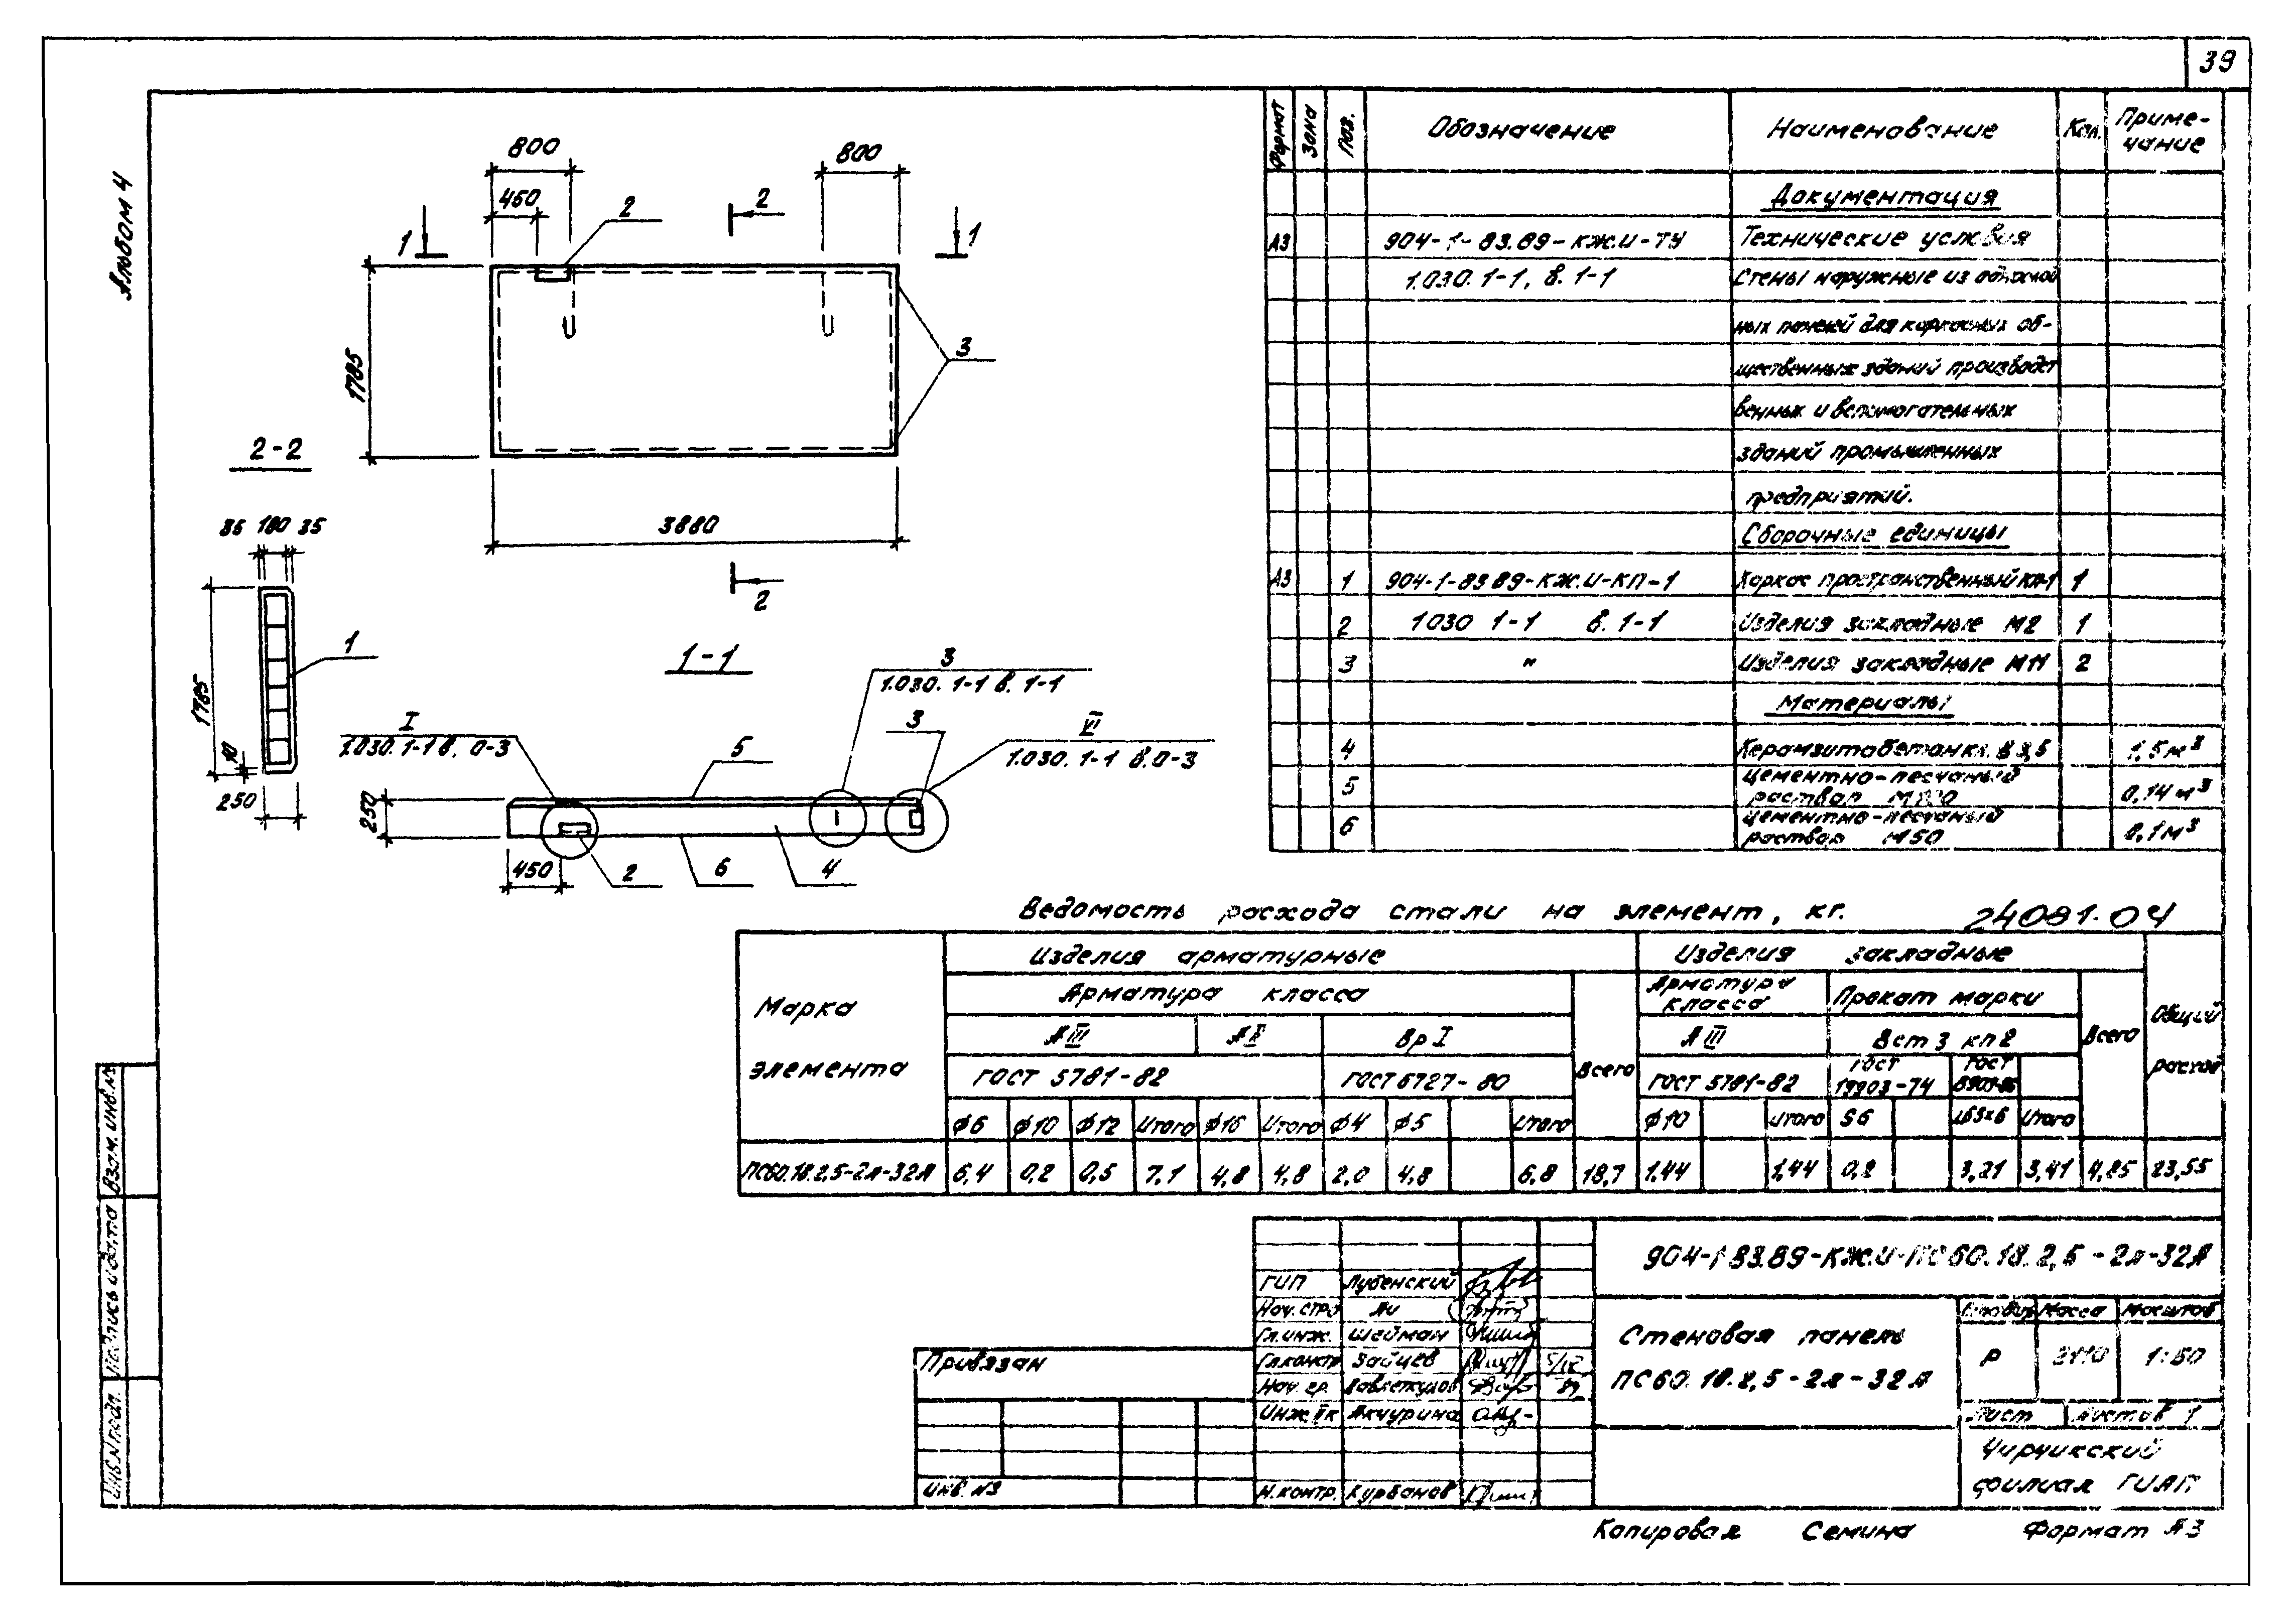 39
Альбом 4
800
800
450
2
2
1
1
1785
3
2-2
3880
35 180 35
2
1
1-1
3
1.030. 1-1 в. 1-1
I
1.030. 1-1 в. 0-3
5
3
VI
1.030. 1-1 в. 0-3
1785
10
250
250
450
2
6
4
Формат Зона Поз. Обозначение Наименование Кол. Приме-
чание
Документация
А3 904-1-83.89-КЖ.И-ТУ Технические условия
1.030. 1-1, в. 1-1 Стены наружные из
ных панелей для каркасных об-
щественных зданий производст
венных и вспомогательных
зданий промышленных
предприятий.
Сборочные единицы
А3 1 904-1-83 89-КЖ.И-КП-1 Каркас пространственный КП-1 1
2 1030 1-1 в. 1-1 Изделия закладные М2 1
3 " Изделия закладные М11 2
Материалы
4 Керамзитобетон кл. В 3,5 1,5 м³
5 Цементно-песчаный
раствор 0,14 м³
6 Цементно-песчаный
раствор М50 0,1 м³
Ведомость расхода стали на элемент, кг. 24081-04
Марка
элемента
Изделия арматурные Изделия закладные
Арматура класса Арматура
класса Прокат марки
А III А I Вр I А III Вст 3 кп 2
Всего Всего Общий
расход
ГОСТ 5781-82 ГОСТ 6727-80 ГОСТ 5781-82 ГОСТ
19903-74 ГОСТ
ф6 ф10 ф12 Итого ф16 Итого ф4 ф5 Итого ф10 Итого S6 L63х6 Итого
ПС60.18.2,5-2л-32Л 6,4 0,2 0,5 7,1 4,8 4,8 2,0 4,8 6,8 18,7 1,44 1,44 0,2 3,21 3,41 4,85 23,55
904-1-83.89-КЖ.И-ПС60.18.2,5-2л-32Л
ГИП Лубенский
Нач. стро Ли
Гл.инж. Шейман
Гл.констр Зайцев
Нач. гр. Давлеткулов
Инж. IIк Акчурина
Н.контр. Курбанов
Стеновая панель
ПС60.18.2,5-2л-32л
Стадия Масса Масштаб
Р 3110 1:50
Лист Листов 1
Чирчикский
филиал ГИАП
Привязан
Инв. №
Взам. инв. №
Подпись и дата
Инв. № подл.
Копировал Семина Формат А3